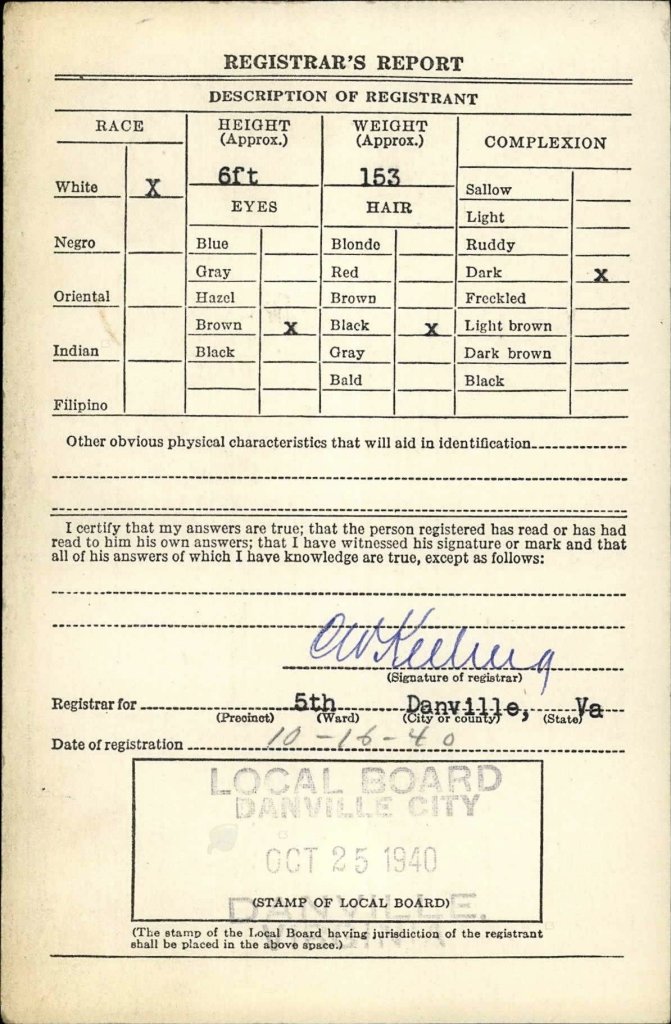 REGISTRAR'S REPORT
DESCRIPTION OF REGISTRANT
RACE
HEIGHT (Approx.)
WEIGHT (Approx.)
COMPLEXION
White X
6ft
153
Sallow
EYES
HAIR
Light
Negro
Blue
Blonde
Ruddy
Gray
Red
Dark x
Oriental
Hazel
Brown
Freckled
Brown x
Black x
Light brown
Indian
Black
Gray
Dark brown
Bald
Black
Filipino
Other obvious physical characteristics that will aid in identification
I certify that my answers are true; that the person registered has read or has had
read to him his own answers; that I have witnessed his signature or mark and that
all of his answers of which I have knowledge are true, except as follows:
(Signature of registrar)
Registrar for 5th Danville, Va
(Precinct) (Ward) (City or county) (State)
Date of registration 10-16-40
LOCAL BOARD
DANVILLE CITY
OCT 25 1940
(STAMP OF LOCAL BOARD)
DANVILLE,
(The stamp of the Local Board having jurisdiction of the registrant
shall be placed in the above space.)